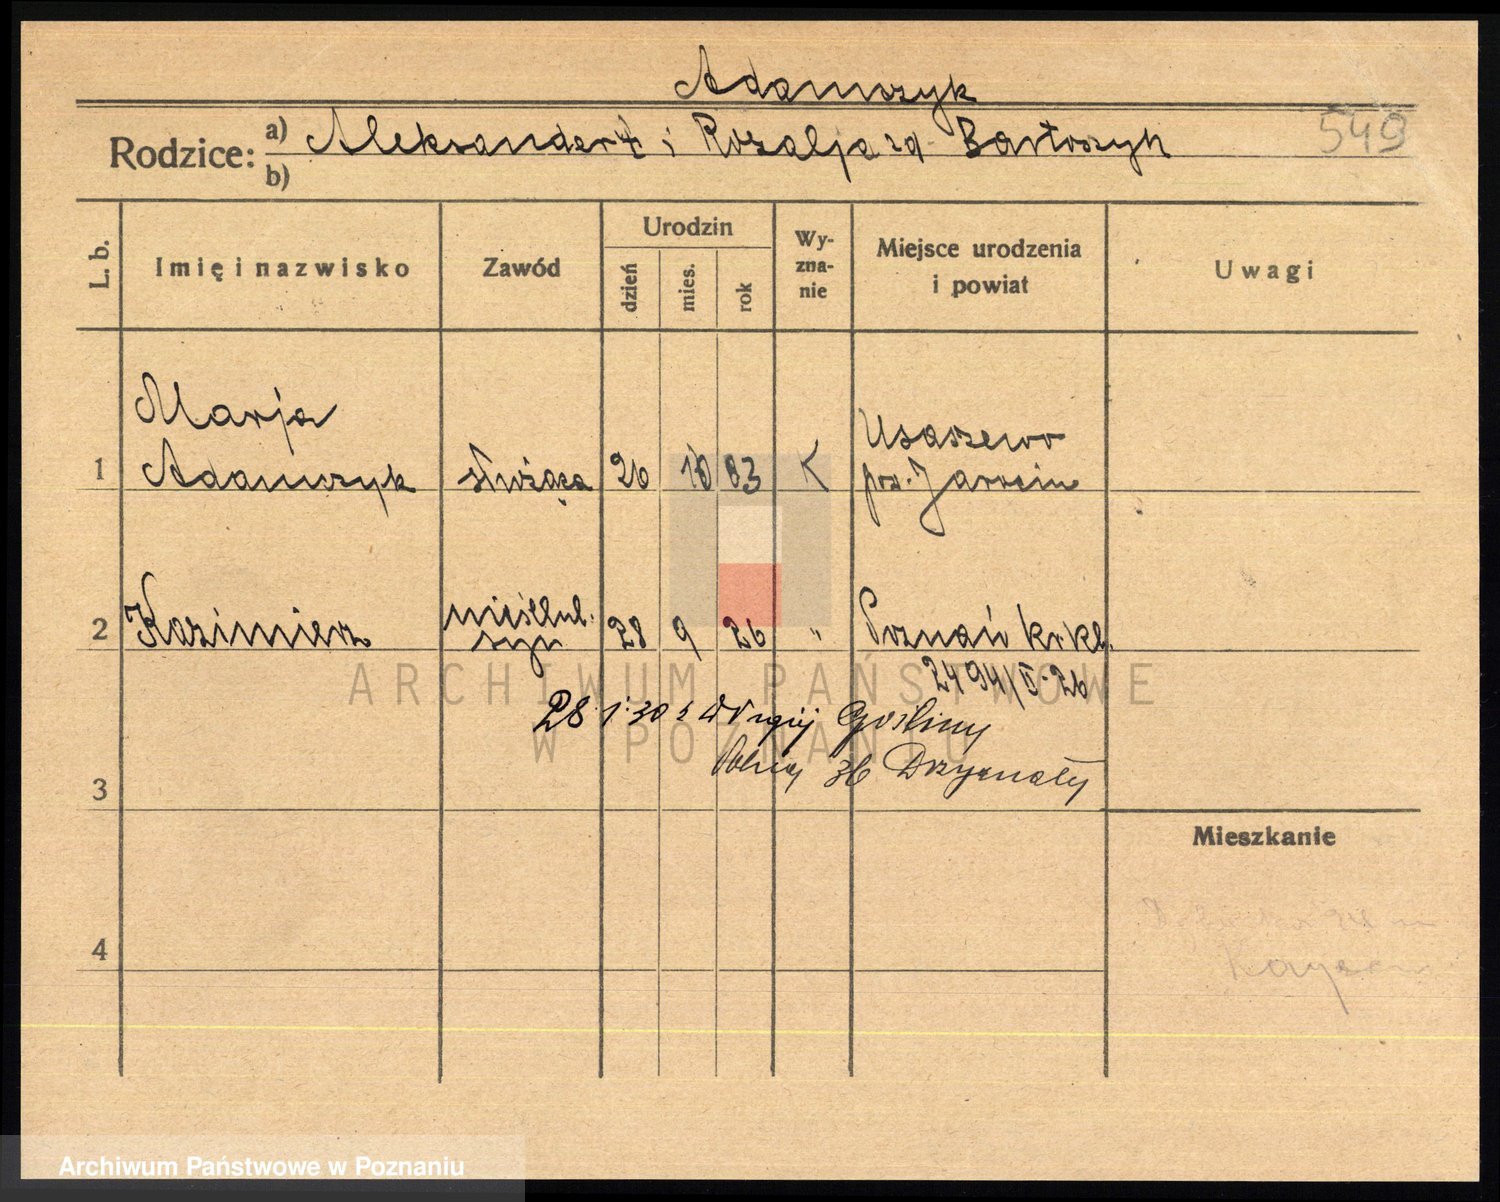 Adamczyk
Rodzice: a) Aleksander i Rozalja zd. Bartoszyk 549
b)
L. b. Imię i nazwisko Zawód Urodzin dzień mies. rok Wy-zna-nie Miejsce urodzenia i powiat Uwagi
Marja
1 Adamczyk służąca 26 10 03 K
pow. Jarocin
2 Kazimierz nieśllub. syn 28 9 26 " Poznań kr. kl.
2494/II.26
28.1.30 z Gośliny
36 Drzymały
3
Mieszkanie
4
ARCHIWUM PAŃSTWOWE
W POZNANIU
Archiwum Państwowe w Poznaniu